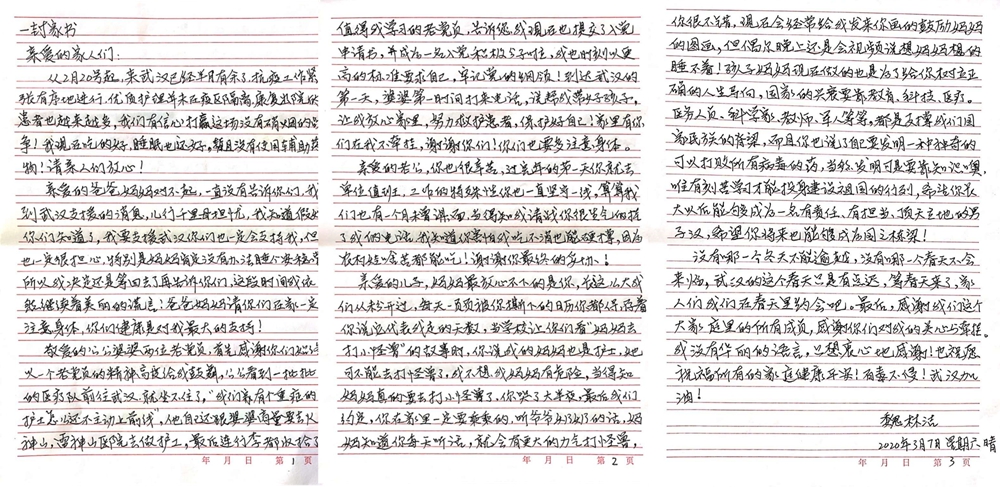 一封家书
亲爱的家人们:
从2月20号起,来武汉已经半月有余了,抗疫工作紧
张有序地进行,优质护理并未在疫区隔离,康复出院的
患者也越来越多,我们有信心打赢这场没有硝烟的战
争!我现在吃的好,睡眠也还好,暂且没有使用辅助药
物!请亲人们放心!
亲爱的爸爸妈妈对不起,一直没有告诉你们,我
到武汉支援的消息,儿行千里母担忧,我知道假如
你们知道了,我要支援武汉你们也一定会支持我,但
也一定很担心,特别是妈妈肯定没有办法睡个安稳觉
所以我决定还是等回去了再告诉你们,这段时间我依
然继续着美丽的谎言!爸爸妈妈请你们在家一定
注意身体,你们健康是对我最大的支持!
敬爱的公公婆婆两位老党员,首先感谢你们始终
以一个老党员的精神高度给我鼓舞,公公看到一批批
的医疗队前往武汉,就坐不住了,“我们家有个重症的
护士怎么还不主动上前线”,他自还跟婆婆商量要去火
神山,雷神山医院去做护工,最后连行李都收拾了
年 月 日 第 1 页
值得我学习的老党员,告诉你,我现在也提交了入党
申请书,并成为一名入党积极分子,我也时刻以更
高的标准要求自己,牢记党的纲领!到达武汉的
第一天,婆婆第一时间打来电话,说帮我带好孩子,
让我放心家里,努力救护患者,保护好自己!家里有你
们在我不牵挂,谢谢你们!你们也要多注意身体。
亲爱的老公,你也很辛苦,过去年的第一天你就去
单位值班,工作的特殊性你也一直坚守一线,算算我
们也有一个月未曾谋面,当得知我请战你很生气的挂
了我的电话,我知道你害怕我吃不消也能硬撑,因为
农村娃啥苦都能吃!谢谢你最终的妥协!
亲爱的儿子,妈妈最放心不下的是你,长这么大我
们从未分开过,每天一页页被你撕下的日历你都保存着
你说这代表我走的天数,当学校让你们看“妈妈去
打小怪兽”的故事时,你说我的妈妈也是护士,她
可不能去打怪兽了,我不想我妈妈有危险,当得知
妈妈真的要去打小怪兽了,你哭了大半夜,最后我们
约定,你在家里一定要乖乖的,听爷爷奶奶的话,妈
妈知道你每天听话,就会有更大的力气打小怪兽,
年 月 日 第 2 页
你很不错,现在会经常给我发来你画的鼓励妈妈
的图画,但偶尔晚上还是会视频说想妈妈想的
睡不着!孩子妈妈现在做的也是为了给你树立正
确的人生导向,国家的兴衰要靠教育、科技、医疗。
医务人员、科学家、教师、军人等等,都是支撑我们国
家民族的脊梁,而且你也说了自己要发明一种神奇的
可以打败所有病毒的药,当然,发明可是要靠知识噢,
唯有刻苦学习才能投身建设祖国的行列,希望你长
大以后能够成为一名有责任、有担当、顶天立地的男
子汉,希望你将来也能够成为国之栋梁!
没有哪一个冬天不能逾越,没有哪一个春天不会
来临,武汉的这个春天只是有点迟,等春天来了,家
人们我们在春天里约会吧。最后,感谢我们这个
大家庭里的所有成员,感谢你们对我的关心与牵挂。
我没有华丽的语言,只想衷心地感谢!也祝愿
祝福所有的家庭健康平安!百毒不侵!武汉加
油!
魏林洁
2020年3月7日 星期六 晴
年 月 日 第 3 页